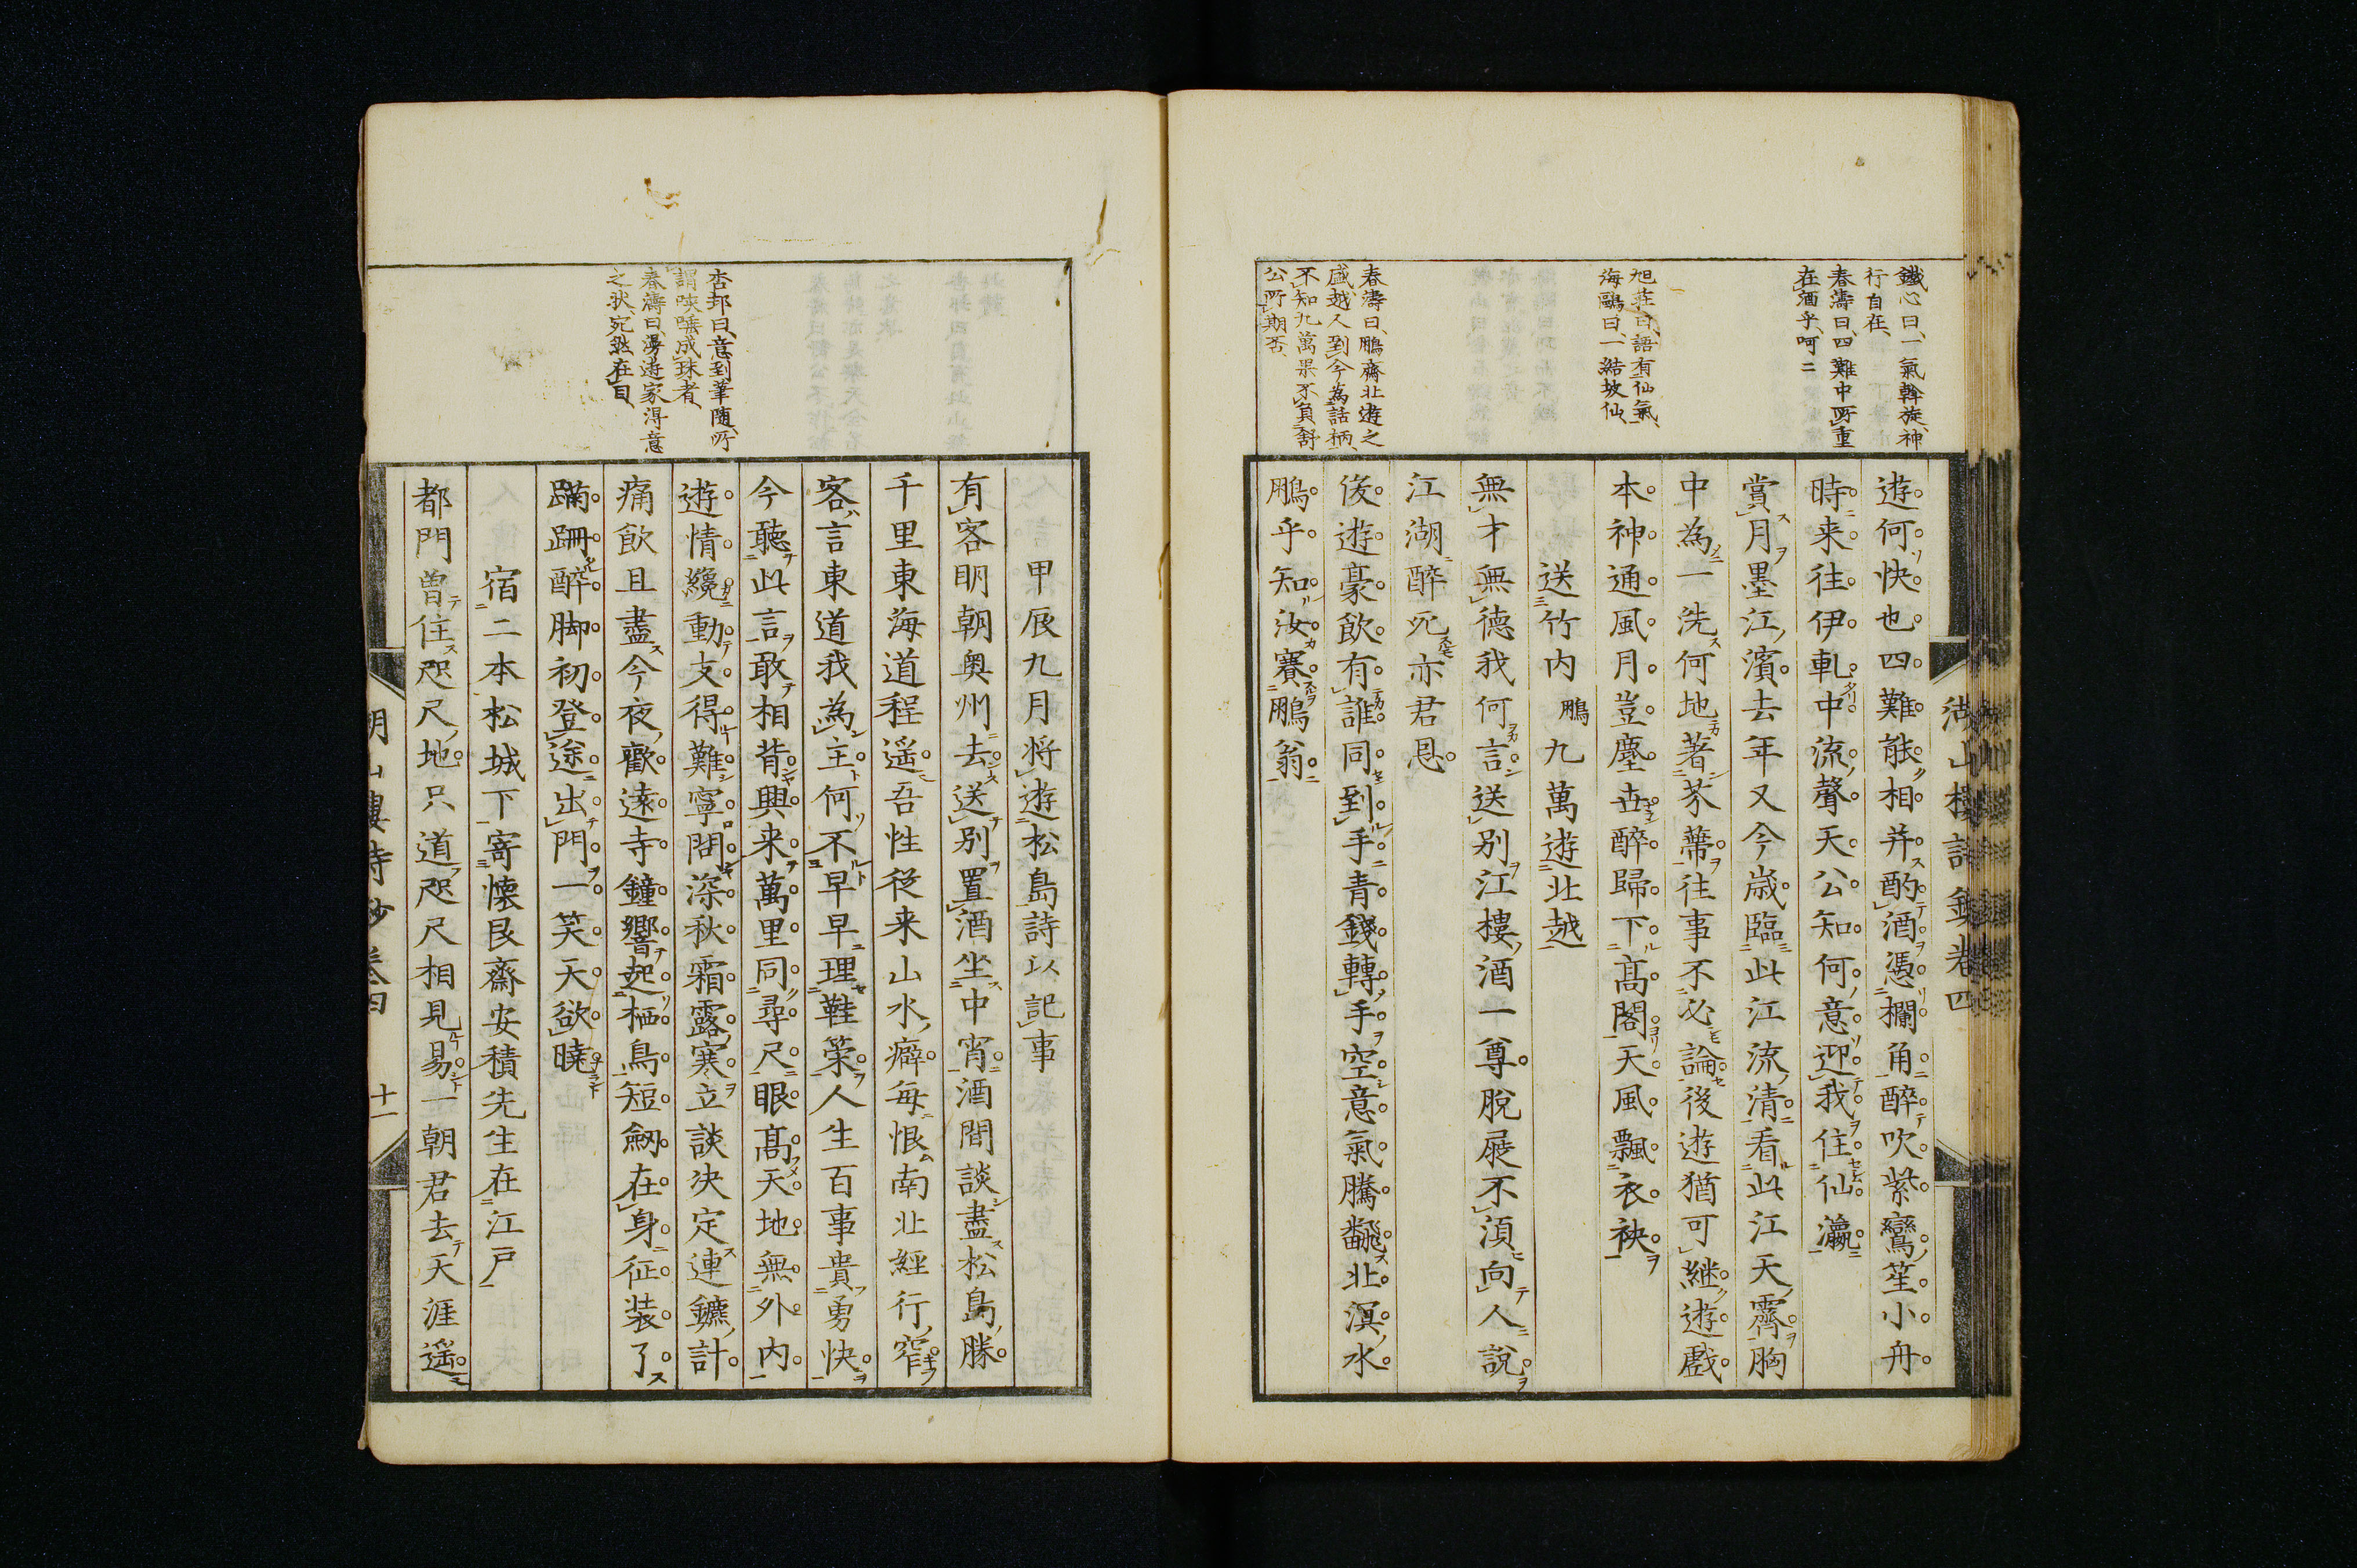 鐵心曰、一氣斡旋、神
行自在、
春濤曰、四難中所重
在酒乎、呵二
旭莊曰、語有仙氣、
海鷗曰、一結坡仙、
春濤曰、鵬齋北遊之
盛、越人到今為話柄、
不知九萬果不負舒
公所期否、
湖山樓詩鈔卷四
遊何快也四難能相并酌酒憑欄角醉吹紫鸞笙小舟
時来往伊軋中流聲天公知何意迎我住仙瀛
賞月墨江濱去年又今歳臨此江流清看此江天霽胸
中為一洗何地著芥蔕往事不必論後遊猶可継遊戲
本神通風月豈塵世醉歸下髙閣天風飄衣袂
送竹内鵬九萬遊北越
無才無德我何言送別江樓酒一尊脫屣不須向人說
江湖醉死亦君恩
後遊豪飲有誰同到手青錢轉手空意氣騰飜北溟水
鵬乎知汝賽鵬翁
杏邨曰、意到筆隨、所
謂咲唾成珠者、
春濤曰、漫遊家得意
之状、宛然在目、
甲辰九月将遊松島詩以記事
有客明朝奥州去送別置酒坐中宵酒間談盡松島勝
千里東海道程遥吾性従来山水癖毎恨南北經行窄
客言東道我為主何不早早理鞋䇿人生百事貴勇快
今聽此言敢相背興来萬里同尋尺眼髙天地無外内
遊情纔動支得難寧問深秋霜露寒立談決定連鑣計
痛飲且盡今夜歡遠寺鐘響起栖鳥短劒在身征装了
蹣跚醉脚初登途出門一笑天欲曉
宿二本松城下寄懐艮齋安積先生在江戸
都門曽住咫尺地只道咫尺相見易一朝君去天涯遥
湖山樓詩鈔卷四
十一